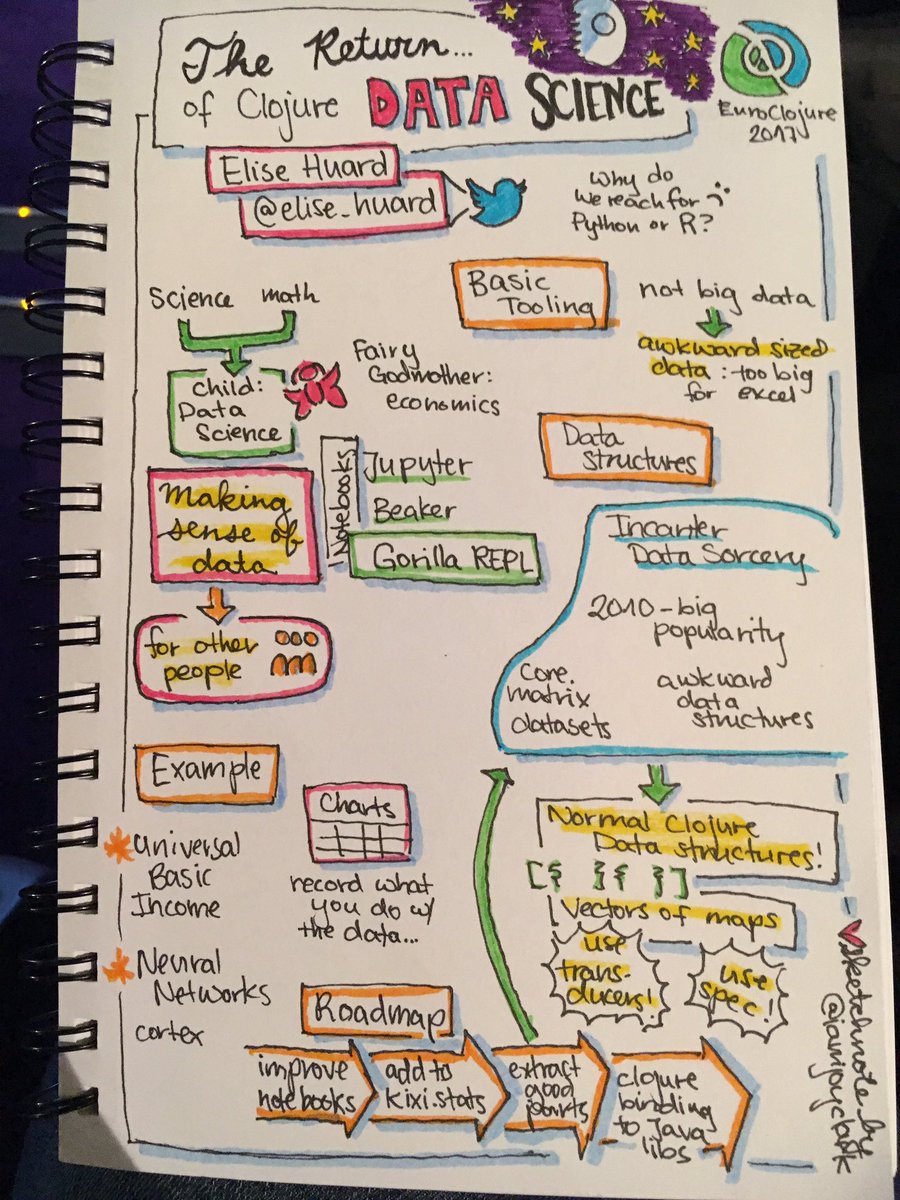 The Return...
of Clojure DATA SCIENCE
EuroClojure
2017
Elise Huard
@elise_huard
Why do
we reach for
Python or R?
Basic
Tooling
not big data
awkward sized
data: too big
for excel
Science math
child:
Data
Science
Fairy
Godmother:
economics
Data
structures
Making
sense of
data
for other
people
Notebooks
Jupyter
Beaker
Gorilla REPL
Incanter
Data Sorcery
2010-big
popularity
core.
matrix
datasets
awkward
data
structures
Example
Universal
Basic
Income
Neural
Networks
cortex
Charts
record what
you do w/
the data...
Normal Clojure
Data structures!
[{ }{ }]
Vectors of maps
use
trans-
ducers!
use
spec!
Roadmap
improve
notebooks
add to
kixi.stats
extract
good
parts
clojure
binding
to Java
libs
sketchnote by
@iamjoyclark